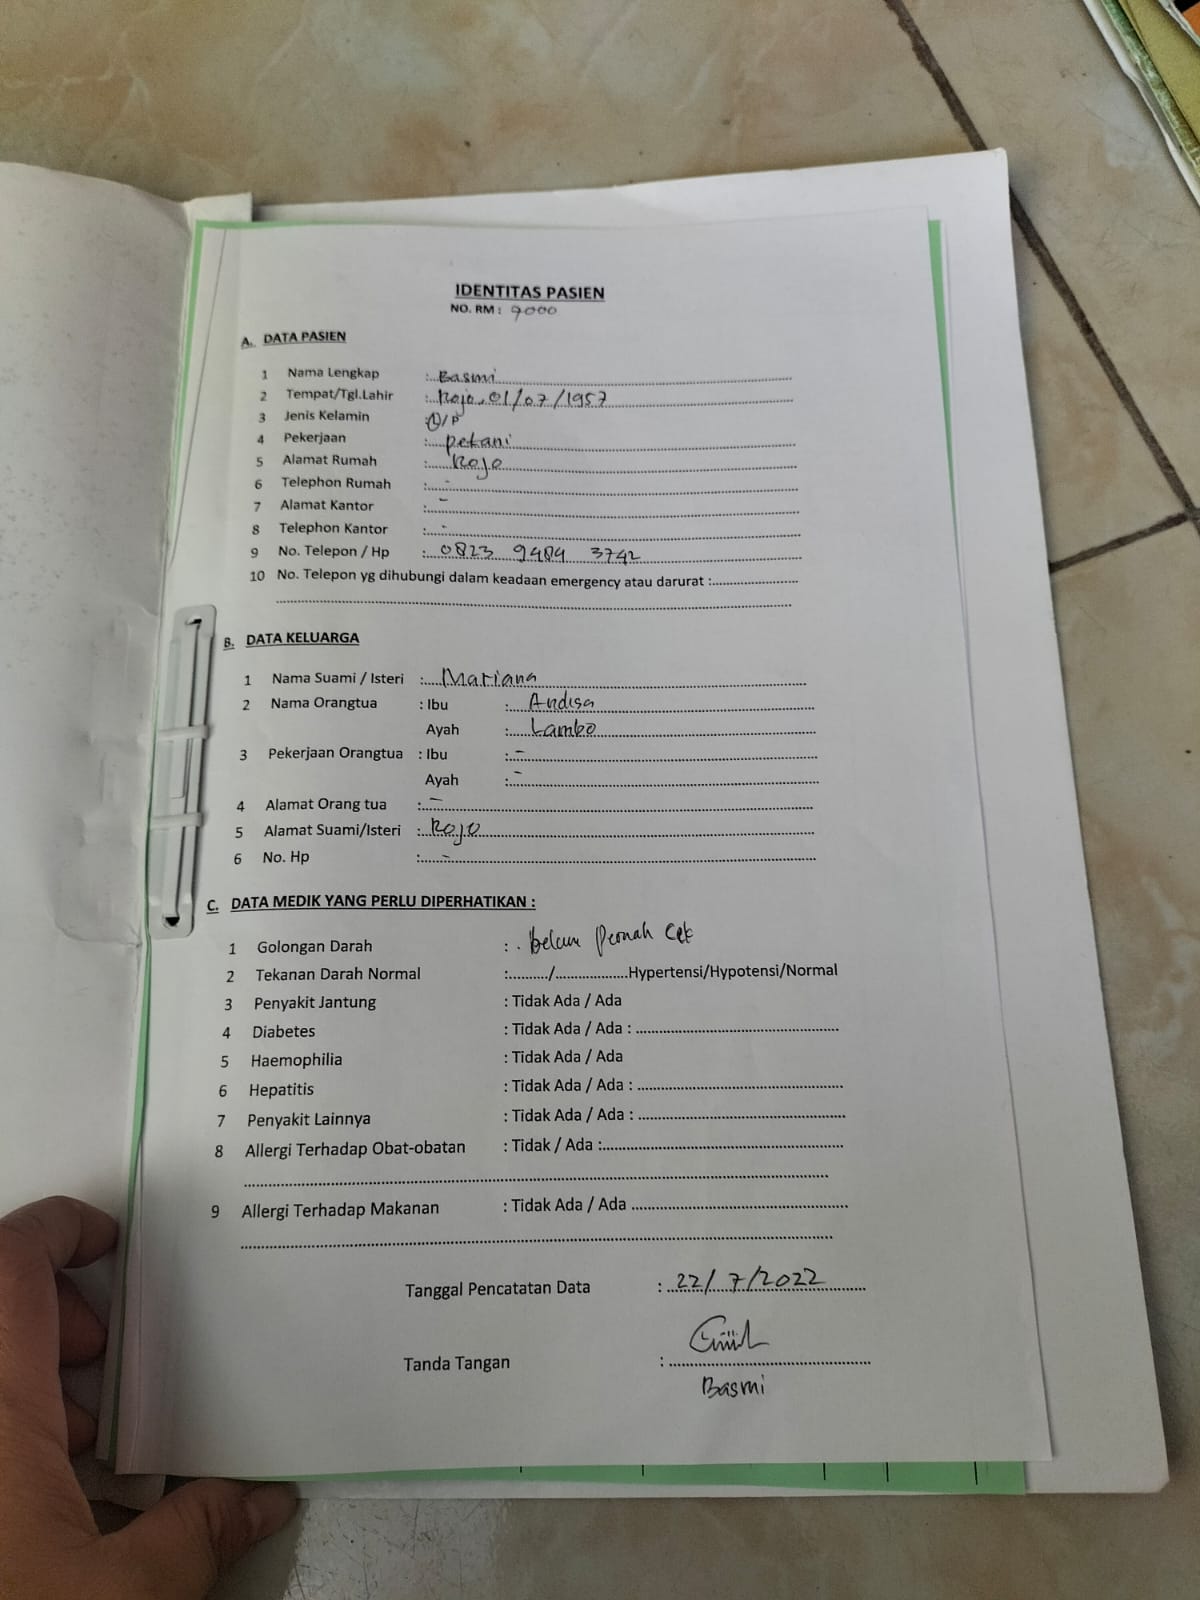 IDENTITAS PASIEN
NO. RM : 9000
A. DATA PASIEN
1 Nama Lengkap : Basmi
2 Tempat/Tgl.Lahir : Rojo, 01/07/1957
3 Jenis Kelamin : L/P
4 Pekerjaan : petani
5 Alamat Rumah : Rojo
6 Telephon Rumah : -
7 Alamat Kantor : -
8 Telephon Kantor : -
9 No. Telepon / Hp : 0823 9484 3742
10 No. Telepon yg dihubungi dalam keadaan emergency atau darurat :
B. DATA KELUARGA
1 Nama Suami / Isteri : Mariana
2 Nama Orangtua : Ibu : Andisa
Ayah : Lambo
3 Pekerjaan Orangtua : Ibu : -
Ayah : -
4 Alamat Orang tua : -
5 Alamat Suami/Isteri : Rojo
6 No. Hp : -
C. DATA MEDIK YANG PERLU DIPERHATIKAN :
1 Golongan Darah : belum pernah cek
2 Tekanan Darah Normal : ........../...................Hypertensi/Hypotensi/Normal
3 Penyakit Jantung : Tidak Ada / Ada
4 Diabetes : Tidak Ada / Ada :
5 Haemophilia : Tidak Ada / Ada
6 Hepatitis : Tidak Ada / Ada :
7 Penyakit Lainnya : Tidak Ada / Ada :
8 Allergi Terhadap Obat-obatan : Tidak / Ada :
9 Allergi Terhadap Makanan : Tidak Ada / Ada
Tanggal Pencatatan Data : 22/7/2022
Tanda Tangan :
Basmi